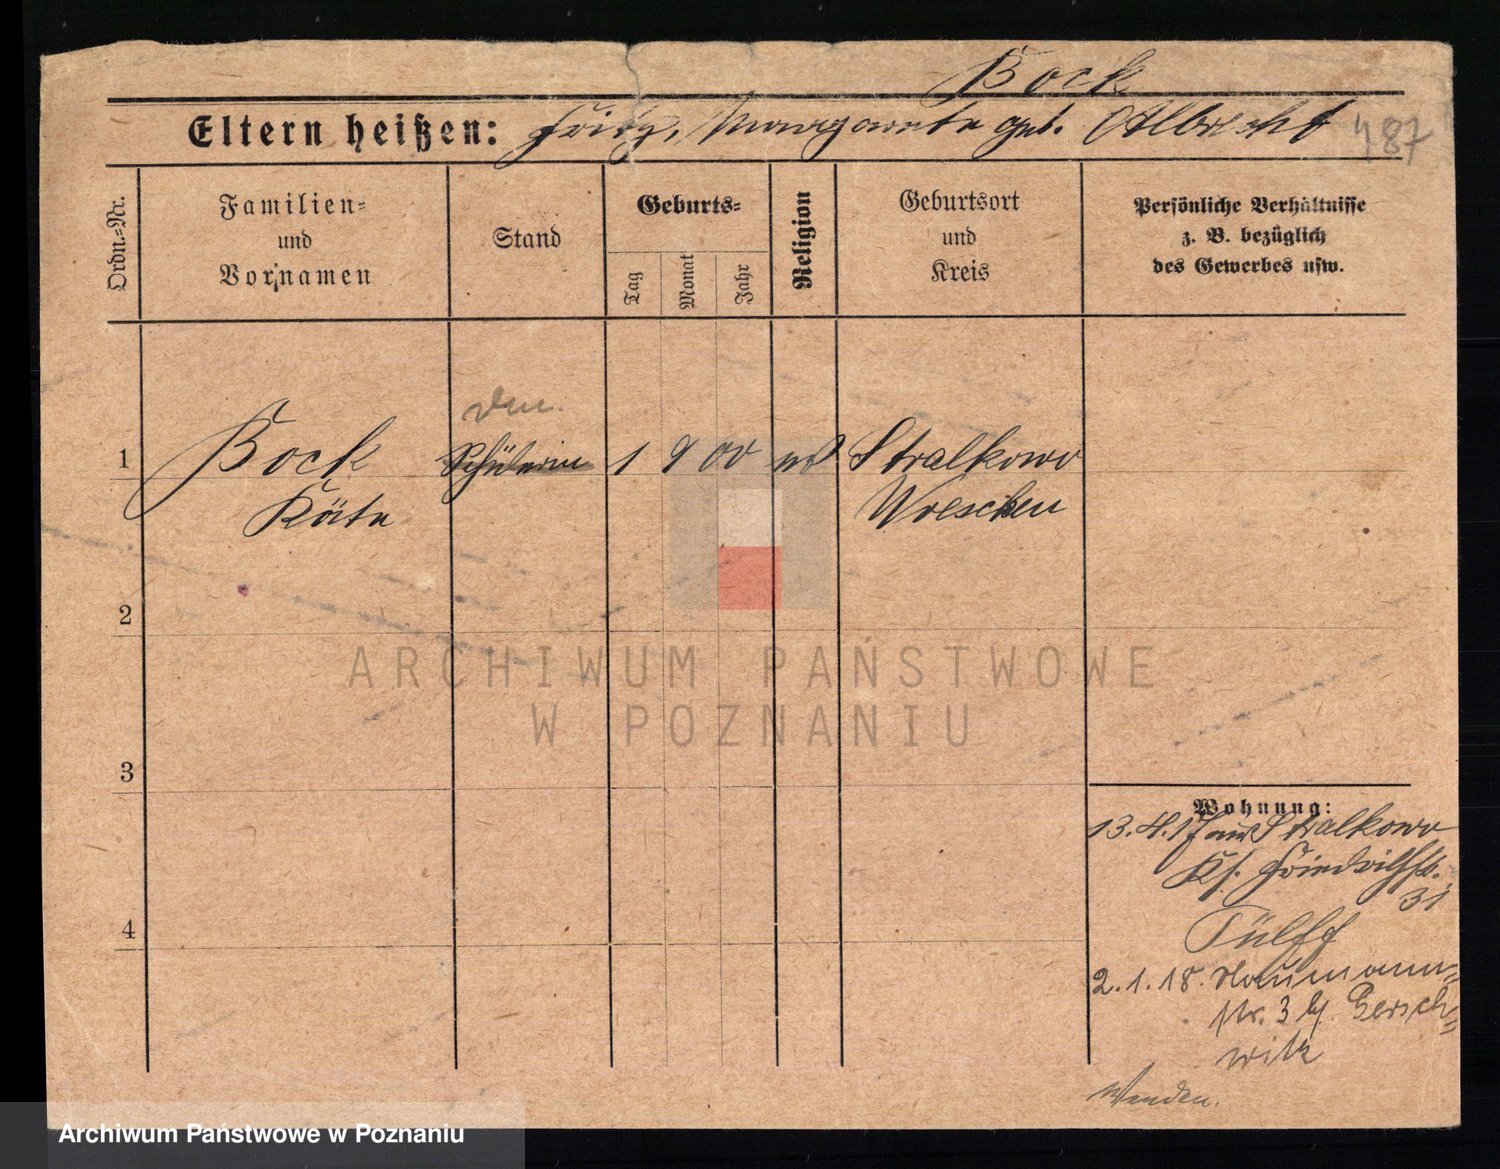 Bock
Eltern heißen: Fritz, Margarete geb. Albrecht 487
Ordn.-Nr.
Familien- und Vornamen
Stand
Geburts-
Tag
Monat
Jahr
Religion
Geburtsort und Kreis
Persönliche Verhältnisse z. B. bezüglich des Gewerbes usw.
1 Bock Schülerin 1 9 00 Stralkowo
Käte Wreschen
2
3
4
Wohnung:
13.4.17 aus Stralkowo
31
2.1.18. Naumann-
str. 3 b/ Gersch-
witz
Wenden.
ARCHIWUM PAŃSTWOWE
W POZNANIU
Archiwum Państwowe w Poznaniu